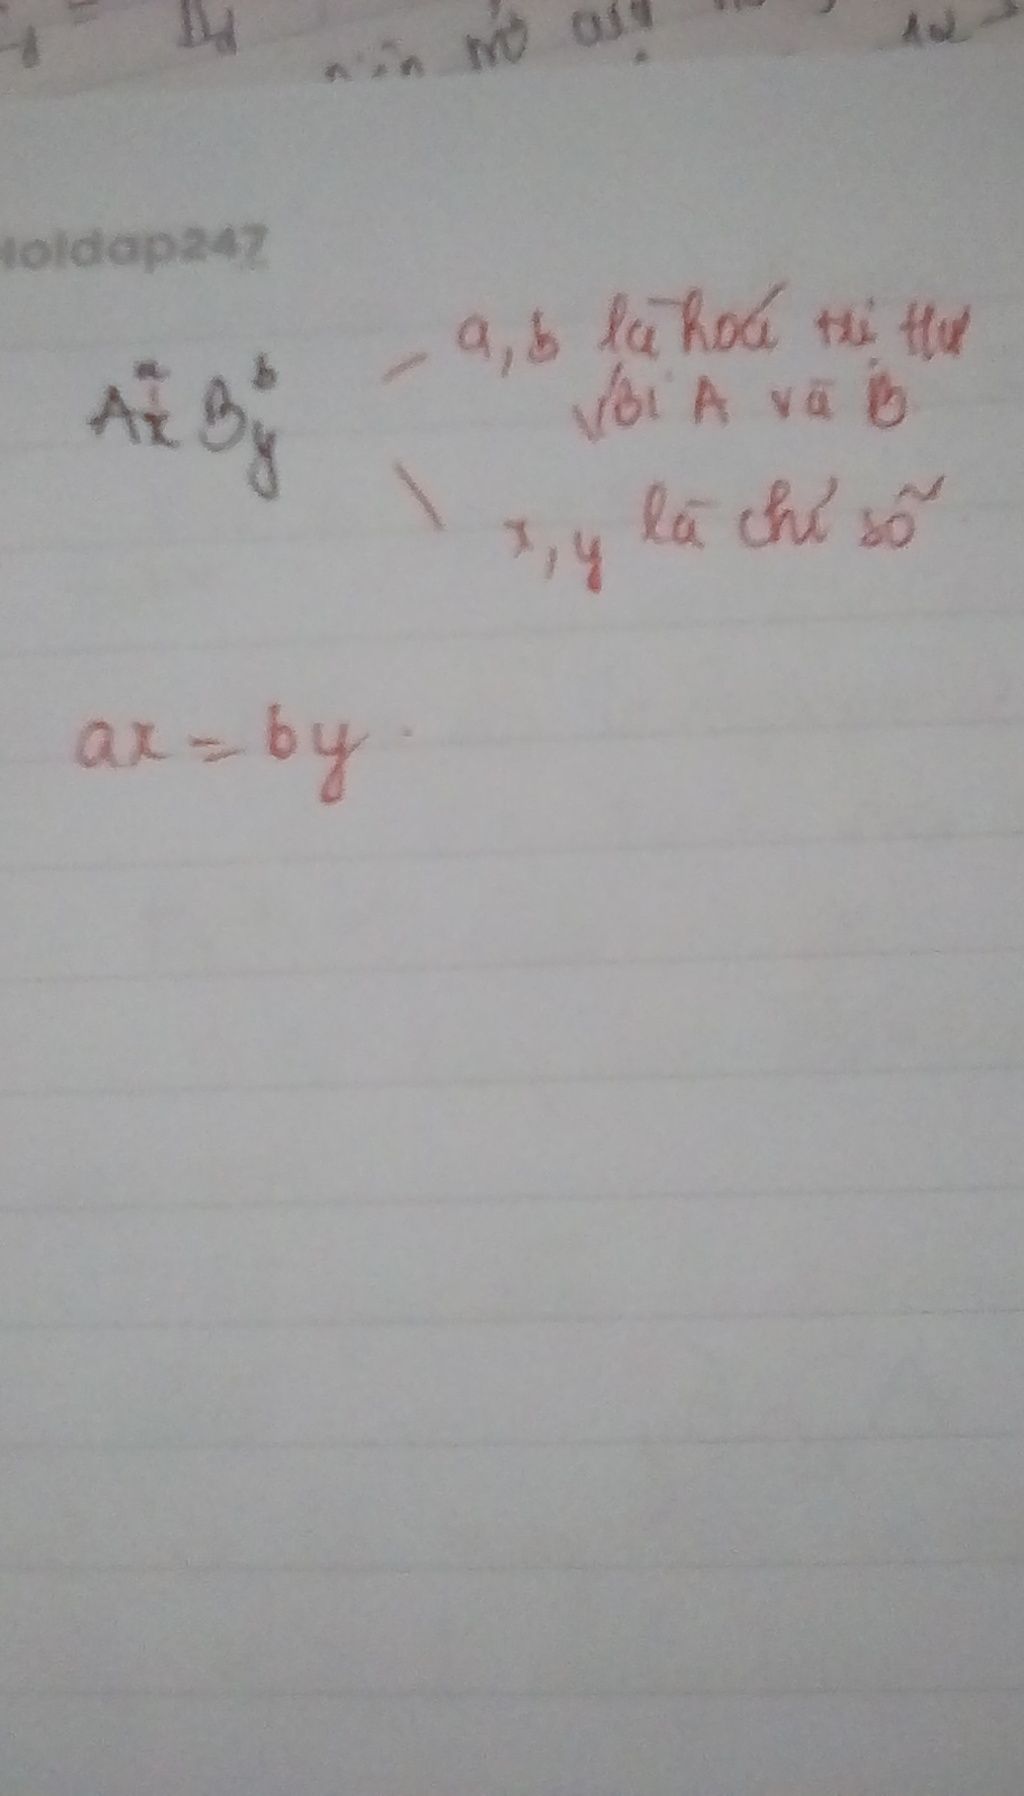 Hoidap247
A x a B y b
a, b là hoá trị
với A và B
x, y là chỉ số
ax = by